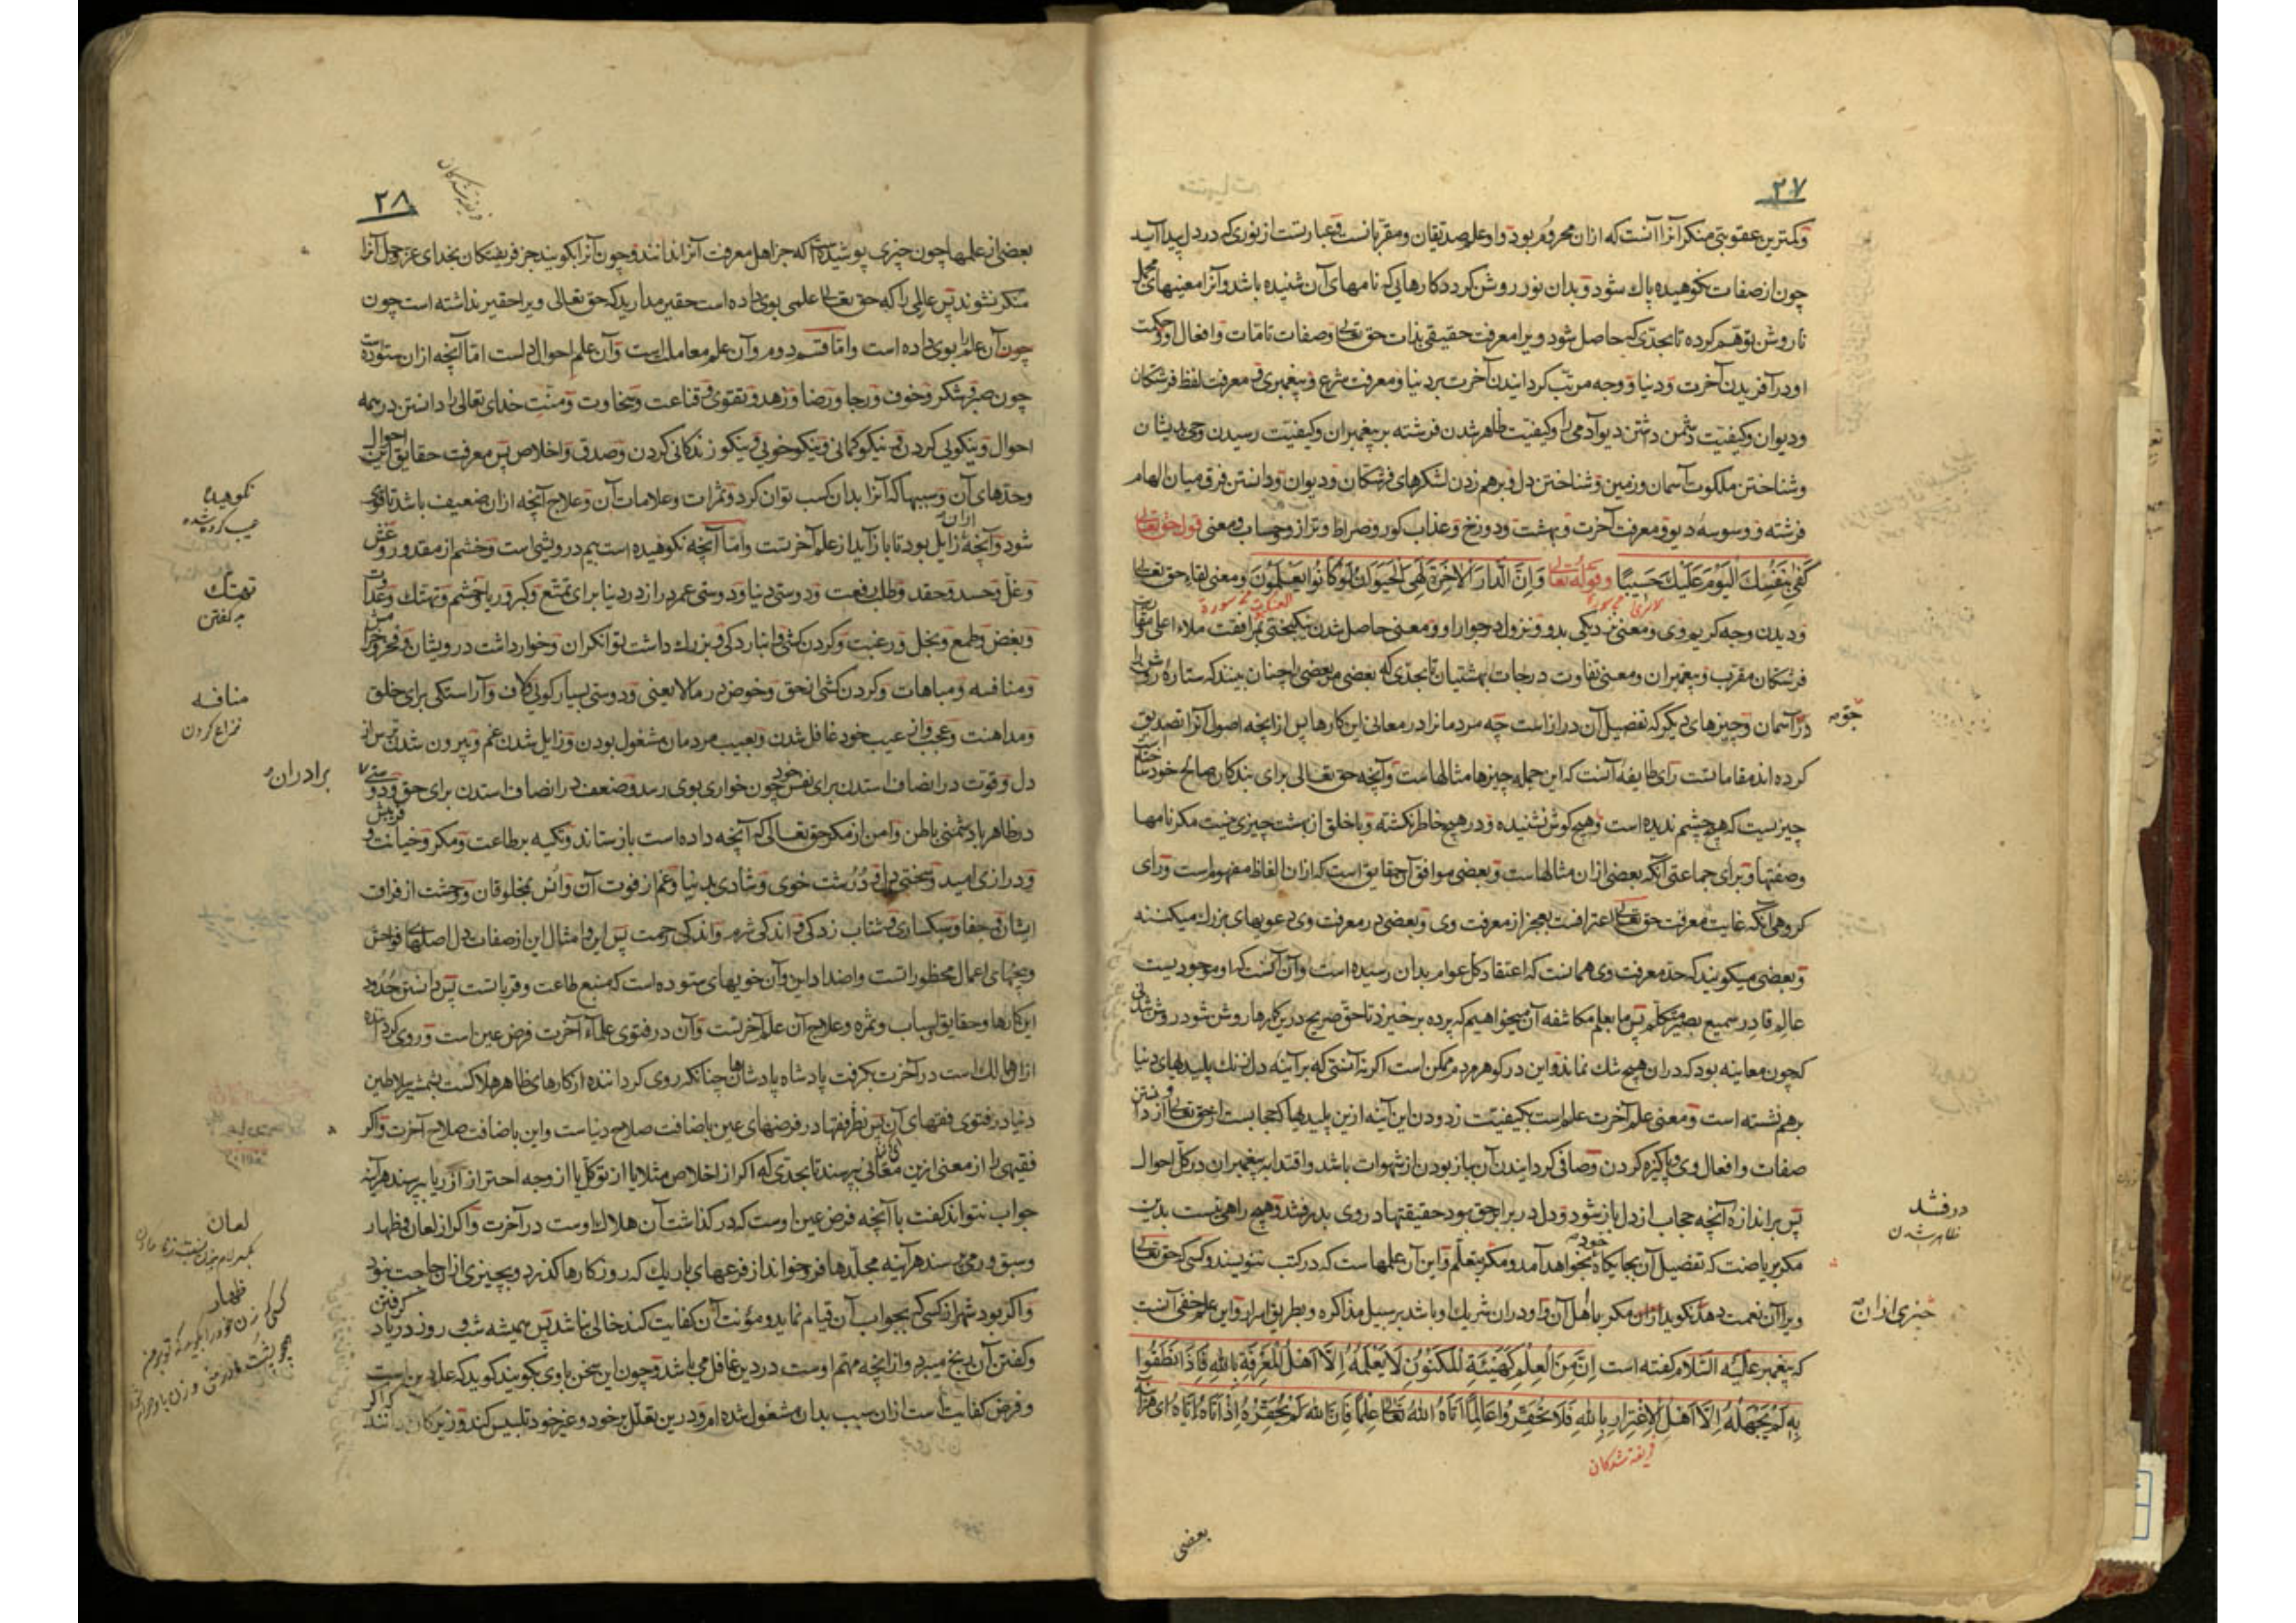 ۲۷
وکمترین عقوبتی منکر آنرا آنست که ازان محروم بود واو علم صدیقان ومقربانست وعبارتست از نوری که در دل پیدا آید
چون از صفات نکوهیده پاك شود وبدان نور روشن کردد کارهایی که نامهای آن شنیده باشد وآنرا معنیهای مجمل
ناروشن توهم کرده تا بحدی که حاصل شود ویرا معرفت حقیقی بذات حق تعالی وصفات تامات وافعال او وحکمت
او در آفریدن آخرت ودنیا ووجه مرتب کردانیدن آخرت بر دنیا ومعرفت شرع وپیغمبری ومعرفت لفظ فرشتکان
ودیوان وکیفیت دشمن داشتن دیو آدمی را وکیفیت ظاهر شدن فرشته بر پیغمبران وکیفیت رسیدن وحی بدیشان
وشناختن ملکوت آسمان وزمین وشناختن دل وبرهم زدن لشکرهای فرشتکان ودیوان ودانستن فرق میان الهام
فرشته ووسوسه دیو ومعرفت آخرت وبهشت ودوزخ وعذاب کور وصراط وترازو وحساب ومعنی قول حق تعالی
کَفٰی بِنَفْسِكَ الْیَوْمَ عَلَیْكَ حَسِیبًا وقوله تعالی وَاِنَّ الدَّارَ الْاٰخِرَةَ لَهِیَ الْحَیَوَانُ لَوْ کَانُوا یَعْلَمُونَ ومعنی لقاء حق تعالی
ودیدن وجه کریم وی ومعنی نزدیکی بدو ونزول در جوار او ومعنی حاصل شدن نیکبختی بمرافقت ملاء اعلی
فرشتکان مقرب وپیغمبران ومعنی تفاوت درجات بهشتیان تا بحدی که بعضی مر بعضی را چنان بینند که ستاره روشن را
در آسمان وچیزهای دیکر که تفصیل آن درازاست چه مردمانرا در معانی این کارها پس ازانچه اصول آنرا تصدیق
جو صح
کرده اند مقاماتست رای طایفه آنست که این جمله چیزها مثالهاست وآنچه حق تعالی برای بندکان صالح خود ساخته است
چیزیست که هیچ چشم ندیده است وهیچ کوش نشنیده ودر هیچ خاطر نکشته وبا خلق از بهشت چیزی نیست مکر نامها
وصفتها وبرای جماعتی آنکه بعضی ازان مثالهاست وبعضی موافق آن حقایق است که ازان الفاظ مفهومست ورای
کروهی آنکه غایت معرفت حق تعالی اعترافست بعجز از معرفت وی وبعضی در معرفت وی دعویهای بزرك میکنند
وبعضی میکویند که حد معرفت وی همانست که اعتقاد کل عوام بدان رسیده است وآن آنست که او موجودیست
عالم قادر سمیع بصیر متکلم پس ما بعلم مکاشفه آن میخواهیم که پرده برخیزد تا حق صریح درین کارها روشن شود روشن شدنی
که چون معاینه بود که دران هیچ شك نماند واین در کوهر مردم ممکن است اکر نه آنستی که بر آینه دل زنك پلیدیهای دنیا
برهم نشسته است ومعنی علم آخرت علم است بکیفیت زدودن این آینه ازین پلیدیها که حجابست از حق تعالی واز دانستن
صفات وافعال وی وپاکیزه کردن وصافی کردانیدن آن بباز بودن از شهوات باشد واقتدا به پیغمبران در کل احوال
پس بر اندازه آنچه حجاب از دل باز شود ودل در برابر حق بود حقیقتها در وی بدرفشد وهیچ راهی نیست بدین
درفشد
ظاهر شدن
مکر بریاضت که تفصیل آن بجایکاه خود بخواهد آمد ومکر بتعلم واین آن علمهاست که در کتب ننویسند وکسی که حق تعالی
ویرا آن نعمت دهد نکوید ازان مکر با اهل آن واو دران شریك او باشد بر سبیل مذاکره وبطریق اسرار واین علم خفی آنست
چیزی ازان صح
که پیغمبر علیه السلام کفته است اِنَّ مِنَ الْعِلْمِ کَهَیْئَةِ الْمَکْنُونِ لَا یَعْلَمُهُ اِلَّا اَهْلُ الْمَعْرِفَةِ بِاللهِ فَاِذَا نَطَقُوا
بِهِ لَمْ یَجْهَلْهُ اِلَّا اَهْلُ الْاِغْتِرَارِ بِاللهِ فَلَا تُحَقِّرُوا عَالِمًا اٰتَاهُ اللهُ تَعَالٰی عِلْمًا فَاِنَّ اللهَ لَمْ یُحَقِّرْهُ اِذْ اٰتَاهُ اِیَّاهُ ای
فریفته شدکان
بعضی
۲۸
فریفته شدکان
بعضی از علمها چون چیزی پوشیده است که جز اهل معرفت آنرا ندانند وچون آنرا بکویند جز فریفتکان بخدای عز وجل آنرا
منکر نشوند پس عالمی را که حق تعالی علمی بوی داده است حقیر مدارید که حق تعالی ویرا حقیر نداشته است چون
چون آن علم را بوی داده است واما قسم دوم وآن علم معامله است وآن علم احوال دلست اما آنچه ازان ستوده است
چون صبر وشکر وخوف ورجا ورضا وزهد وتقوی وقناعت وسخاوت ومنت خدای تعالی را دانستن در همه
احوال ونیکویی کردن ونیکو کمانی ونیکو خویی ونیکو زندکانی کردن وصدق واخلاص پس معرفت حقایق این احوال
وحدهای آن وسببها که آنرا بدان کسب توان کرد وثمرات وعلامات آن وعلاج آنچه ازان ضعیف باشد تا قوی
نکوهیده
عیب کرده شده
شود وآنچه ازان زایل بود تا باز آید از علم آخرتست واما آنچه نکوهیده است بیم درویشی است وخشم از مقدور وغش
وغل وحسد وحقد وطلب رفعت ودوستی دنیا ودوستی عمر دراز در دنیا برای تمتع وکبر وریا وخشم وتهتك وعداوت
تهتك
بد کفتن
وبغض وطمع وبخل ورغبت وکردن کشی وانبارد کی وبزرك داشت توانکران وخوار داشت درویشان وفخر وخرامش
ومنافسه ومباهات وکردن کشی از حق وخوض در ما لا یعنی ودوستی بسیار کویی وآراستکی برای خلق
منافسه
نزاع کردن
ومداهنت وعجب واز عیب خود غافل شدن وبعیب مردمان مشغول بودن وزایل شدن غم وبیرون شدن ترس از
دل وقوت در انصاف استدن برای نفس خود چون خواری بوی رسد وضعف در انصاف استدن برای حق ودوستی
برادران
در ظاهر با دشمنی باطن وامن از مکر حق تعالی که آنچه داده است باز ستاند وتکیه بر طاعت ومکر وخیانت وفریش
ودرازی امید وسختی دل ودرشت خوی وشادی بدنیا وغم از فوت آن وانس بمخلوقان ووحشت از فراق
ایشان وجفا وسبکساری وشتاب زدکی واندکی شرم واندکی رحمت پس این وامثال این از صفات دل اصلهای فواحش
وبیخهای اعمال محظوراتست واضداد این وآن خویهای ستوده است که منبع طاعت وقرباتست پس دانستن حدود
این کارها وحقایق اسباب وثمره وعلاج آن علم آخرتست وآن در فتوی علماء آخرت فرض عین است وروی کرداننده
ازان هالك است در آخرت بکرفت پادشاه پادشاهان چنانکه روی کرداننده از کارهای ظاهر هلاکست بشمشیر سلاطین
دنیا در فتوی فقهای آن پس نظر فقها در فرضهای عین باضافت صلاح دنیاست واین باضافت صلاح آخرت واکر
فقیهی را از معنی ازین معانی بپرسند تا بحدی که اکر از اخلاص مثلا یا از توکل یا از وجه احتراز از ریا بپرسند هرآینه
جواب نتواند کفت با آنچه فرض عین اوست که در کذاشت آن هلاك اوست در آخرت واکر از لعان وظهار
لعان
ظهار
وسبق ورمی پرسند هرآینه مجلدها فرو خواند از فرعهای باریك که روزکارها کذرد وبچیزی ازان حاجت نبود
واکر بود شهر از کسی که بجواب آن قیام نماید ومؤنت آن کفایت کند خالی نباشد پس همیشه شب وروز در یاد کرفتن
وکفتن آن رنج میبرد واز انچه مهم اوست در دین غافل می باشد وچون این سخن با وی بکویند کوید که علم دین است
وفرض کفایت است ازان سبب بدان مشغول شده ام ودرین تعلل بر خود وغیر خود تلبیس کند وزیرکان دانند که اکر